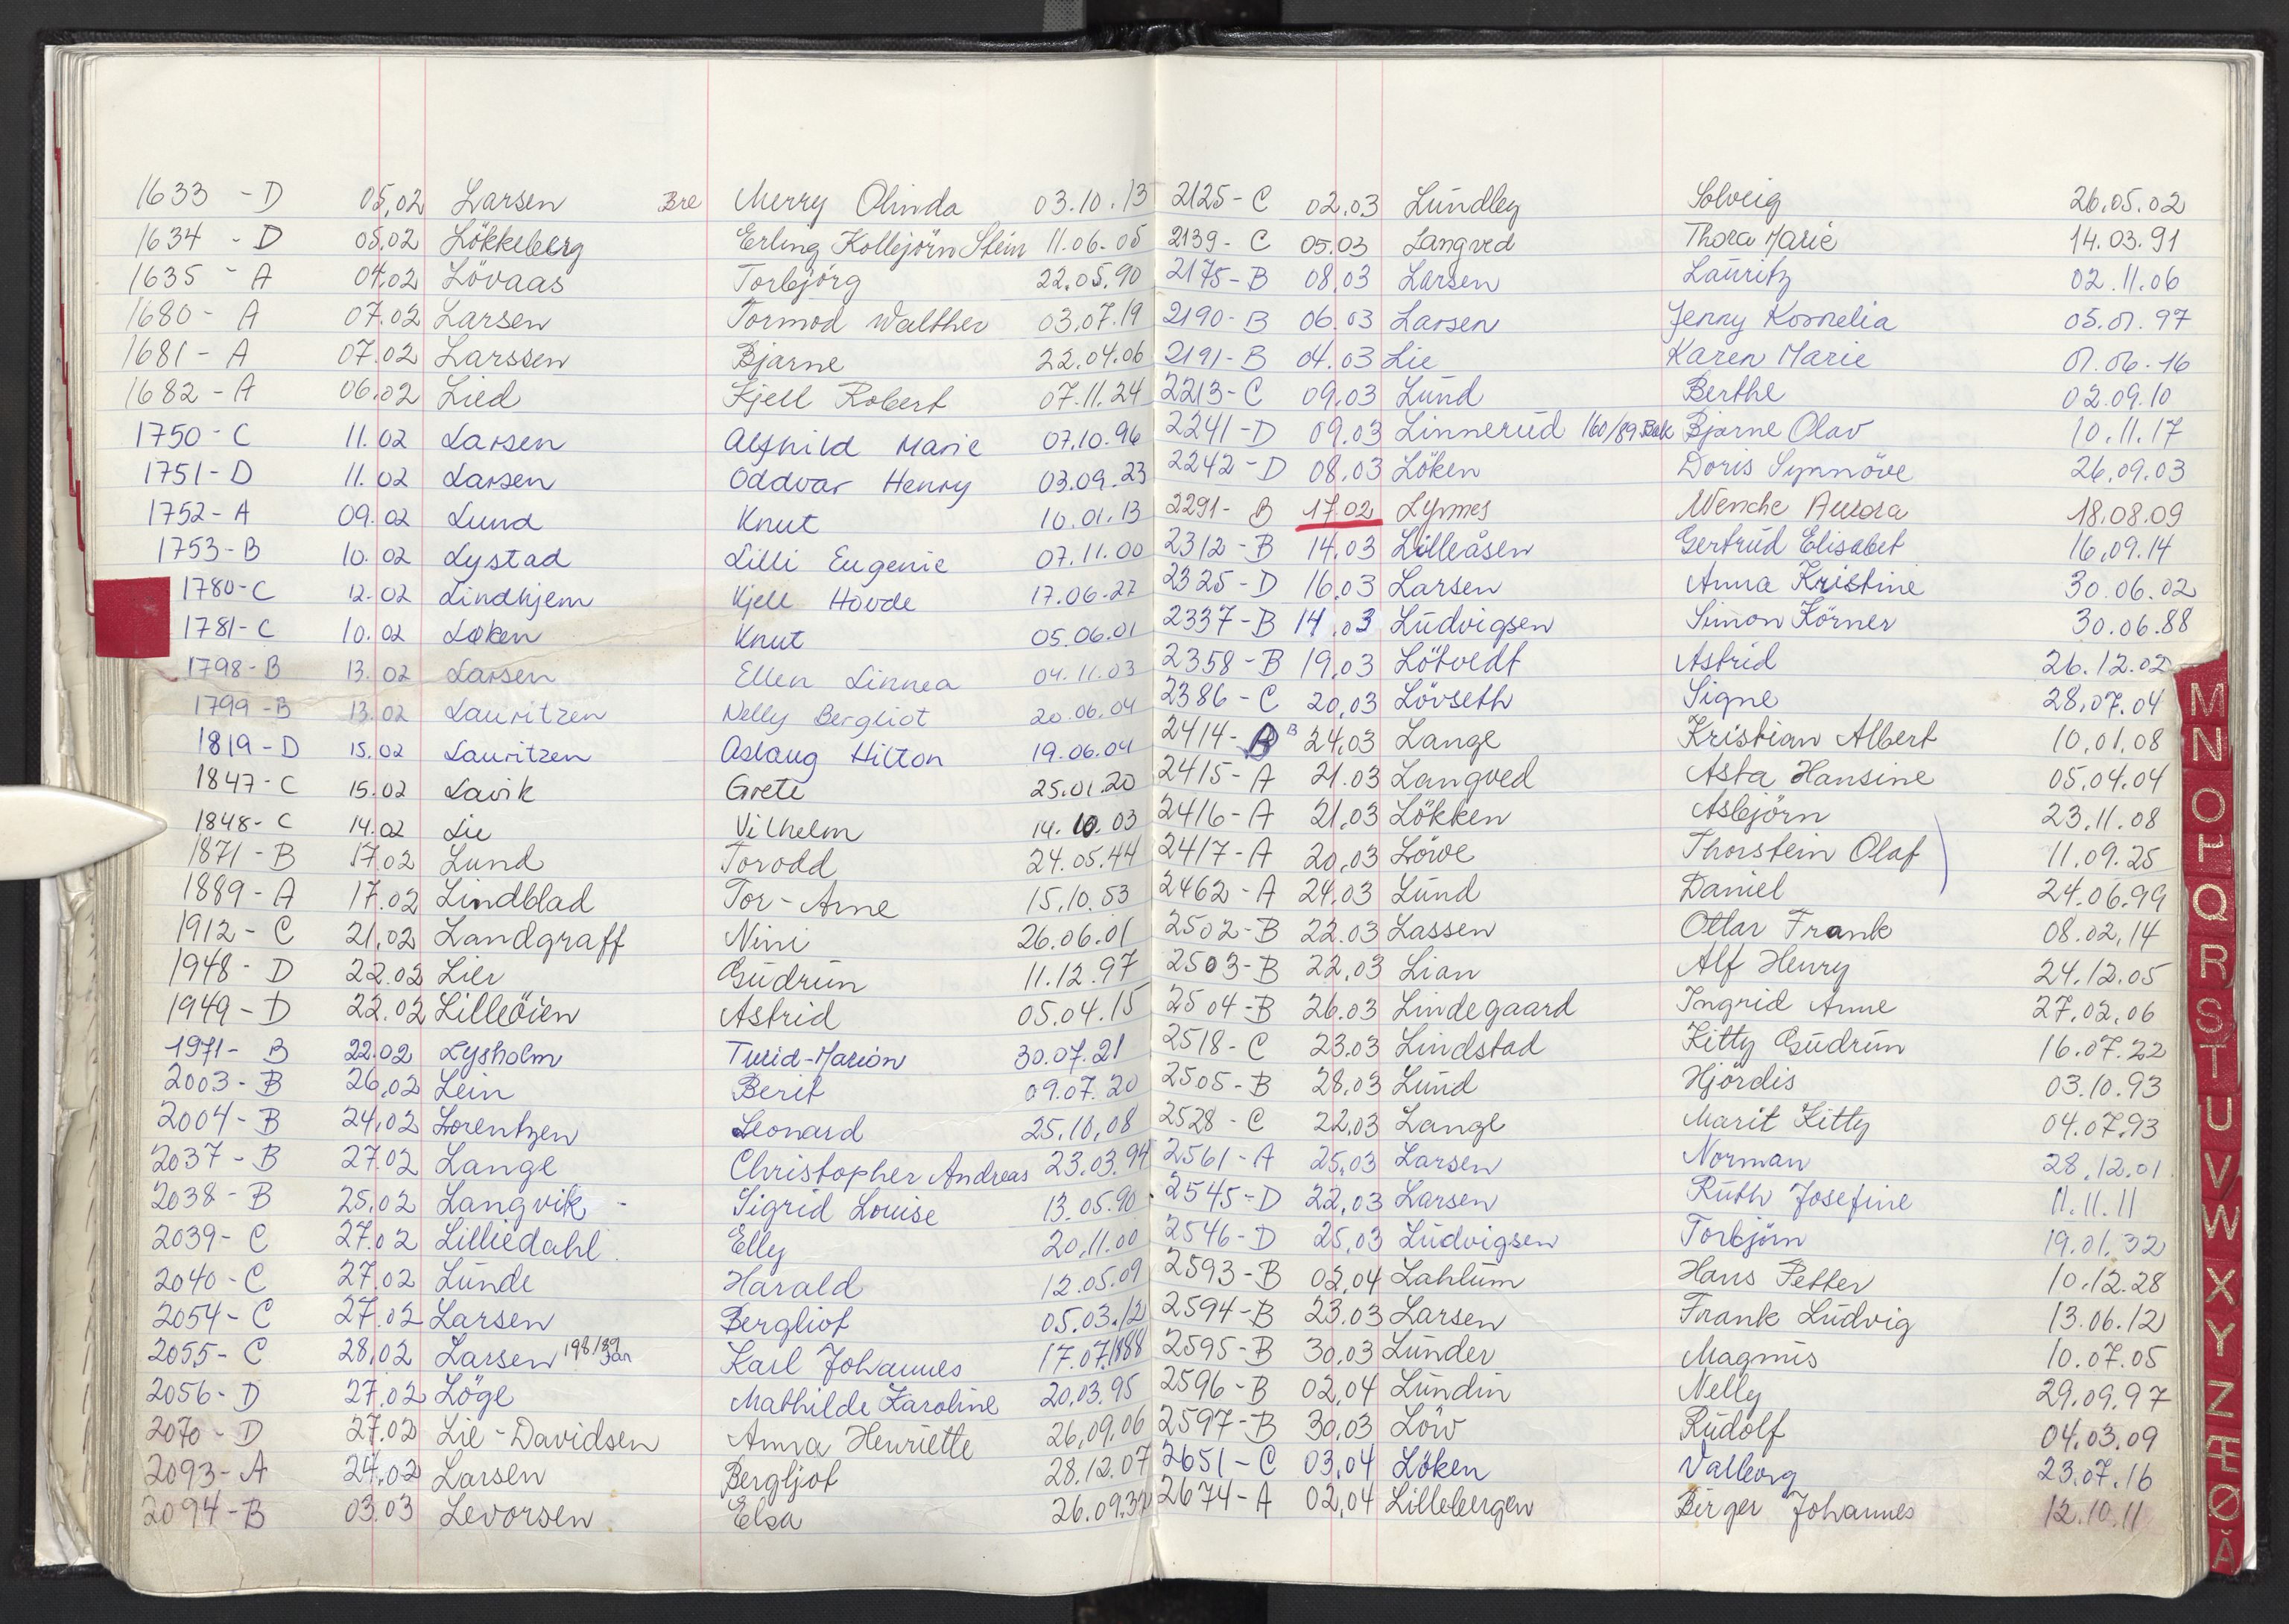 1633 - D 05.02 Larsen Bre Merry Olinda 03.10.13
1634 - D 05.02 Lökkeberg Erling Kolbjörn Stein 11.06.05
1635 - A 04.02 Lövaas Torbjörg 22.05.90
1680 - A 07.02 Larsen Tormod Walther 03.07.19
1681 - A 07.02 Larssen Bjarne 22.04.06
1682 - A 06.02 Lied Kjell Robert 07.11.24
1750 - C 11.02 Larsen Alfhild Marie 07.10.96
1751 - D 11.02 Larsen Oddvar Henry 03.09.23
1752 - A 09.02 Lund Knut 10.01.13
1753 - B 10.02 Lystad Lilli Eugenie 07.11.00
1780 - C 12.02 Lindhjem Kjell Hovde 17.06.22
1781 - C 10.02 Løken Knut 05.06.01
1798 - B 13.02 Larsen Ellen Linnea 04.11.03
1799 - B 13.02 Lauritzen Nelly Bergliot 20.06.04
1819 - D 15.02 Lauritzen Aslaug Hilton 19.06.04
1847 - C 15.02 Lavik Grete 25.01.20
1848 - C 14.02 Lie Vilhelm 14.10.03
1871 - B 17.02 Lund Torodd 24.05.44
1889 - A 17.02 Lindblad Tor-Arne 15.10.53
1912 - C 21.02 Landgraff Nini 26.06.01
1948 - D 22.02 Lier Gudrun 11.12.97
1949 - D 22.02 Lilleöien Astrid 05.04.15
1971 - B 22.02 Lysholm Turid-Marion 30.07.21
2003 - B 26.02 Lein Berit 09.07.20
2004 - B 24.02 Lorentzen Leonard 25.10.08
2037 - B 27.02 Lange Christopher Andreas 23.03.94
2038 - B 25.02 Langvik - Sigrid Louise 13.05.90
2039 - C 27.02 Lilliedahl Elly 20.11.00
2040 - C 27.02 Lunde Harald 12.05.09
2054 - C 27.02 Larsen Bergliot 05.03.12
2055 - C 28.02 Larsen 198/89 Jan Karl Johannes 17.07.1888
2056 - D 27.02 Löge Mathilde Karoline 20.03.95
2070 - D 27.02 Lie-Davidsen Anna Henriette 26.09.06
2093 - A 24.02 Larsen Bergljot 28.12.07
2094 - B 03.03 Levorsen Elsa 26.09.32
2125 - C 02.03 Lundby Solveig 26.05.02
2139 - C 05.03 Langved Thora Marie 14.03.91
2175 - B 08.03 Larsen Lauritz 02.11.06
2190 - B 06.03 Larsen Jenny Kornelia 05.01.97
2191 - B 04.03 Lie Karen Marie 01.06.16
2213 - C 09.03 Lund Berthe 02.09.10
2241 - D 09.03 Linnerud 160/89 Bak Bjarne Olav 10.11.17
2242 - D 08.03 Löken Doris Synnöve 26.09.03
2291 - B 17.02 Lynnes Wenche Aurora 18.08.09
2312 - B 14.03 Lilleåsen Gertrud Elisabet 16.09.14
2325 - D 16.03 Larsen Anna Kristine 30.06.02
2337 - B 14.03 Ludvigsen Simon Körner 30.06.88
2358 - B 19.03 Lötvedt Astrid 26.12.02
2386 - C 20.03 Lövseth Signe 28.07.04
2414 - B B 24.03 Lange Kristian Albert 10.01.08
2415 - A 21.03 Langved Asta Hansine 05.04.04
2416 - A 21.03 Lökken Asbjörn 23.11.08
2417 - A 20.03 Löwe Thorstein Olaf 11.09.25
2462 - A 24.03 Lund Daniel 24.06.99
2502 - B 22.03 Lassen Ottar Frank 08.02.14
2503 - B 22.03 Lian Alf Henry 24.12.05
2504 - B 26.03 Lindegaard Ingrid Anne 27.02.06
2518 - C 23.03 Lindstad Kitty Gudrun 16.07.22
2505 - B 28.03 Lund Hjördis 03.10.93
2528 - C 22.03 Lange Marit Kitty 04.07.93
2561 - A 25.03 Larsen Norman 28.12.01
2545 - D 22.03 Larsen Ruth Josefine 11.11.11
2546 - D 25.03 Ludvigsen Torbjörn 19.01.32
2593 - B 02.04 Lahlum Hans Petter 10.12.28
2594 - B 23.03 Larsen Frank Ludvig 13.06.12
2595 - B 30.03 Lunder Magnus 10.07.05
2596 - B 02.04 Lundin Nelly 29.09.97
2597 - B 30.03 Löw Rudolf 04.03.09
2651 - C 03.04 Löken Valborg 23.07.16
2674 - A 02.04 Lillebergen Birger Johannes 12.10.11
M
N
O
P
Q
R
S
T
U
V
W
X
Y
Z
Æ
Ø
Å